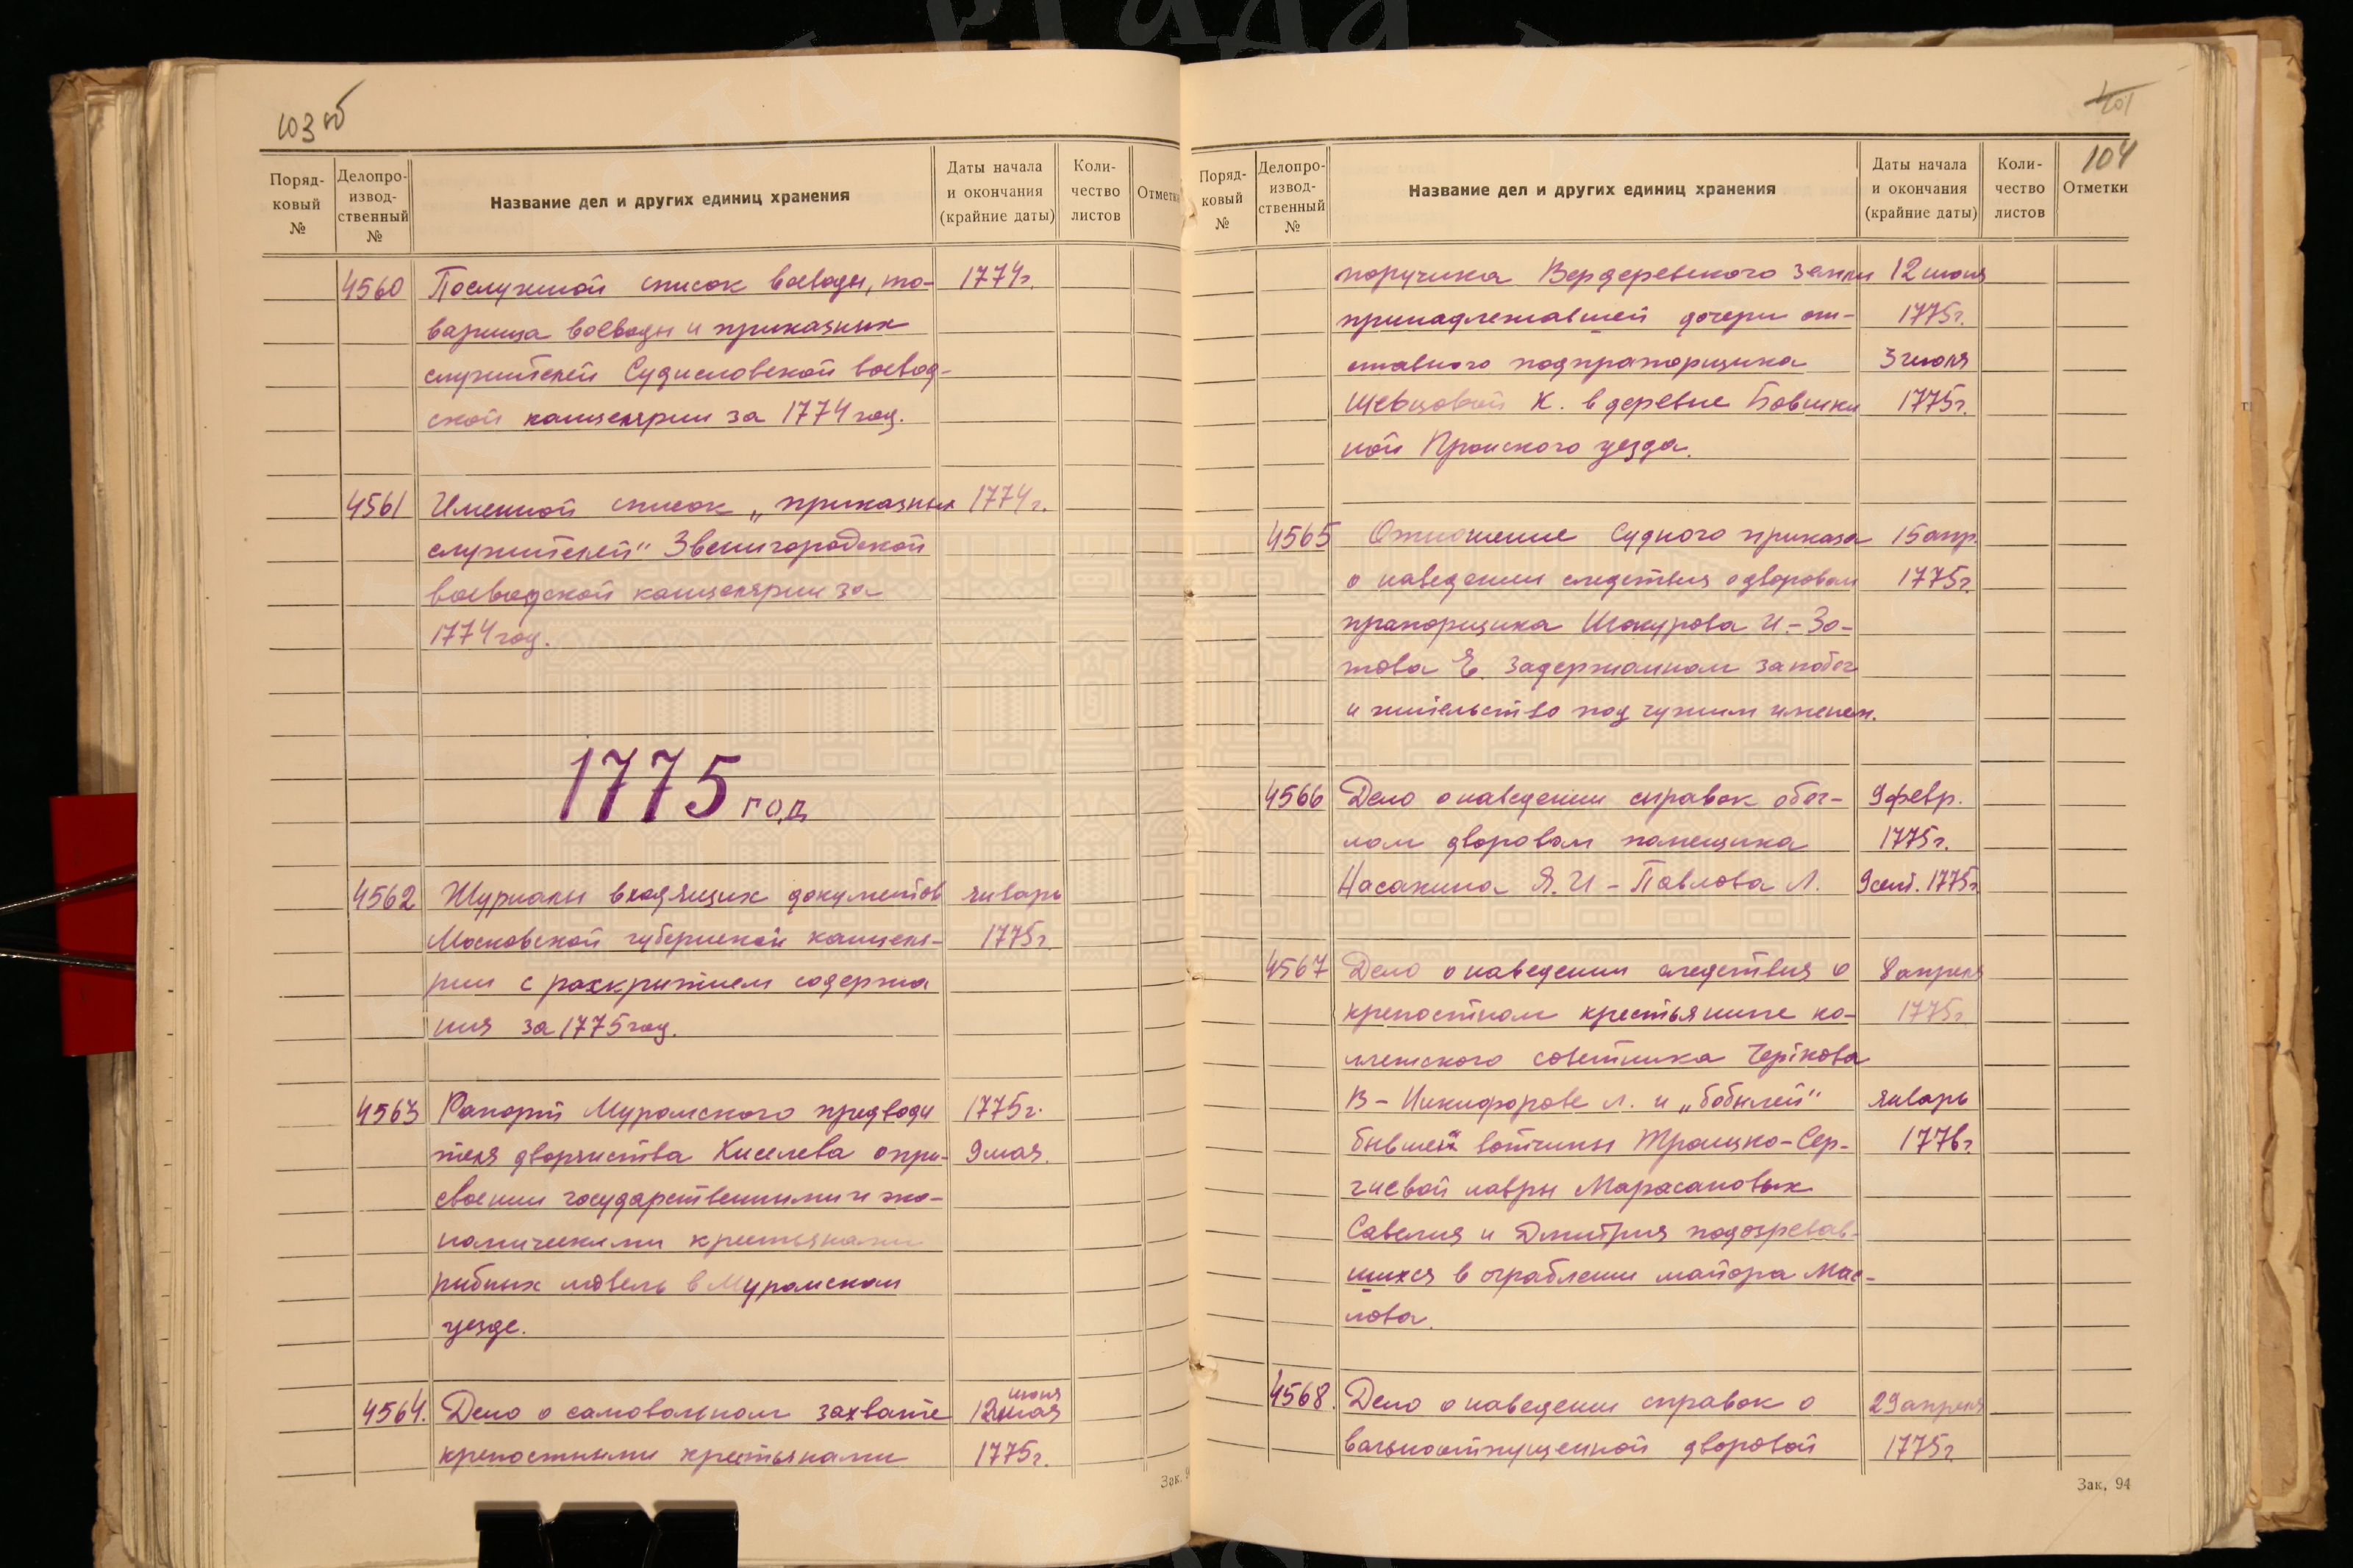 103 об
Поряд-
ковый
№
Делопро-
извод-
ственный
№
Название дел и других единиц хранения
Даты начала
и окончания
(крайние даты)
Коли-
чество
листов
Отметки
4560 Послужной список воеводы, то- 1774г.
варища воеводы и приказных
служителей Судисловской воевод-
ской канцелярии за 1774 год.
4561 Именной список „приказных 1774 г.
служителей" Звенигородской
воеводской канцелярии за
1774 год.
1775 год
4562 Журналы входящих документов январь
Московской губернской канцеля- 1775г.
рии с раскрытием содержа
ния за 1775 год.
4563 Рапорт Муромского предводи 1775г.
теля дворянства Киселева о при- 9 мая.
своении государственными и эко-
номическими крестьянами
рыбных ловель в Муромском
уезде.
4564. Дело о самовольном захвате 12 июня
крепостными крестьянами 1775г.
Зак. 9
104
Поряд-
ковый
№
Делопро-
извод-
ственный
№
Название дел и других единиц хранения
Даты начала
и окончания
(крайние даты)
Коли-
чество
листов
Отметки
поручика Вердеревского земли 12 июня
принадлежавшей дочери от- 1775г.
ставного подпрапорщика 3 июля
Шевцовой К. в деревне Бовыки 1775г.
ной Пронского уезда.
4565 Отношение Судного приказа 15 апр.
о наведении следствия о дворовом 1775г.
прапорщика Шокурова И. - Зо-
това Е. задержанном за побег
и жительство под чужим именем.
4566 Дело о наведении справок о бег- 9 февр.
лом дворовом помещика 1775г.
Насакина Я. И - Павлова Л. 9 сент. 1775г
4567 Дело о наведении следствия о 8 апреля
крепостном крестьянине ко- 1775г.
ллежского советника Чертков­а
В - Никифорове Л. и „бобылей" январь
бывшей вотчины Троицко-Сер- 1776г.
гиевой лавры Марасановых
Савелия и Дмитрия подозревав-
шихся в ограблении майора Мас-
лова.
4568. Дело о наведении справок о 29 апреля
вольноотпущенной дворовой 1775г
Зак. 94